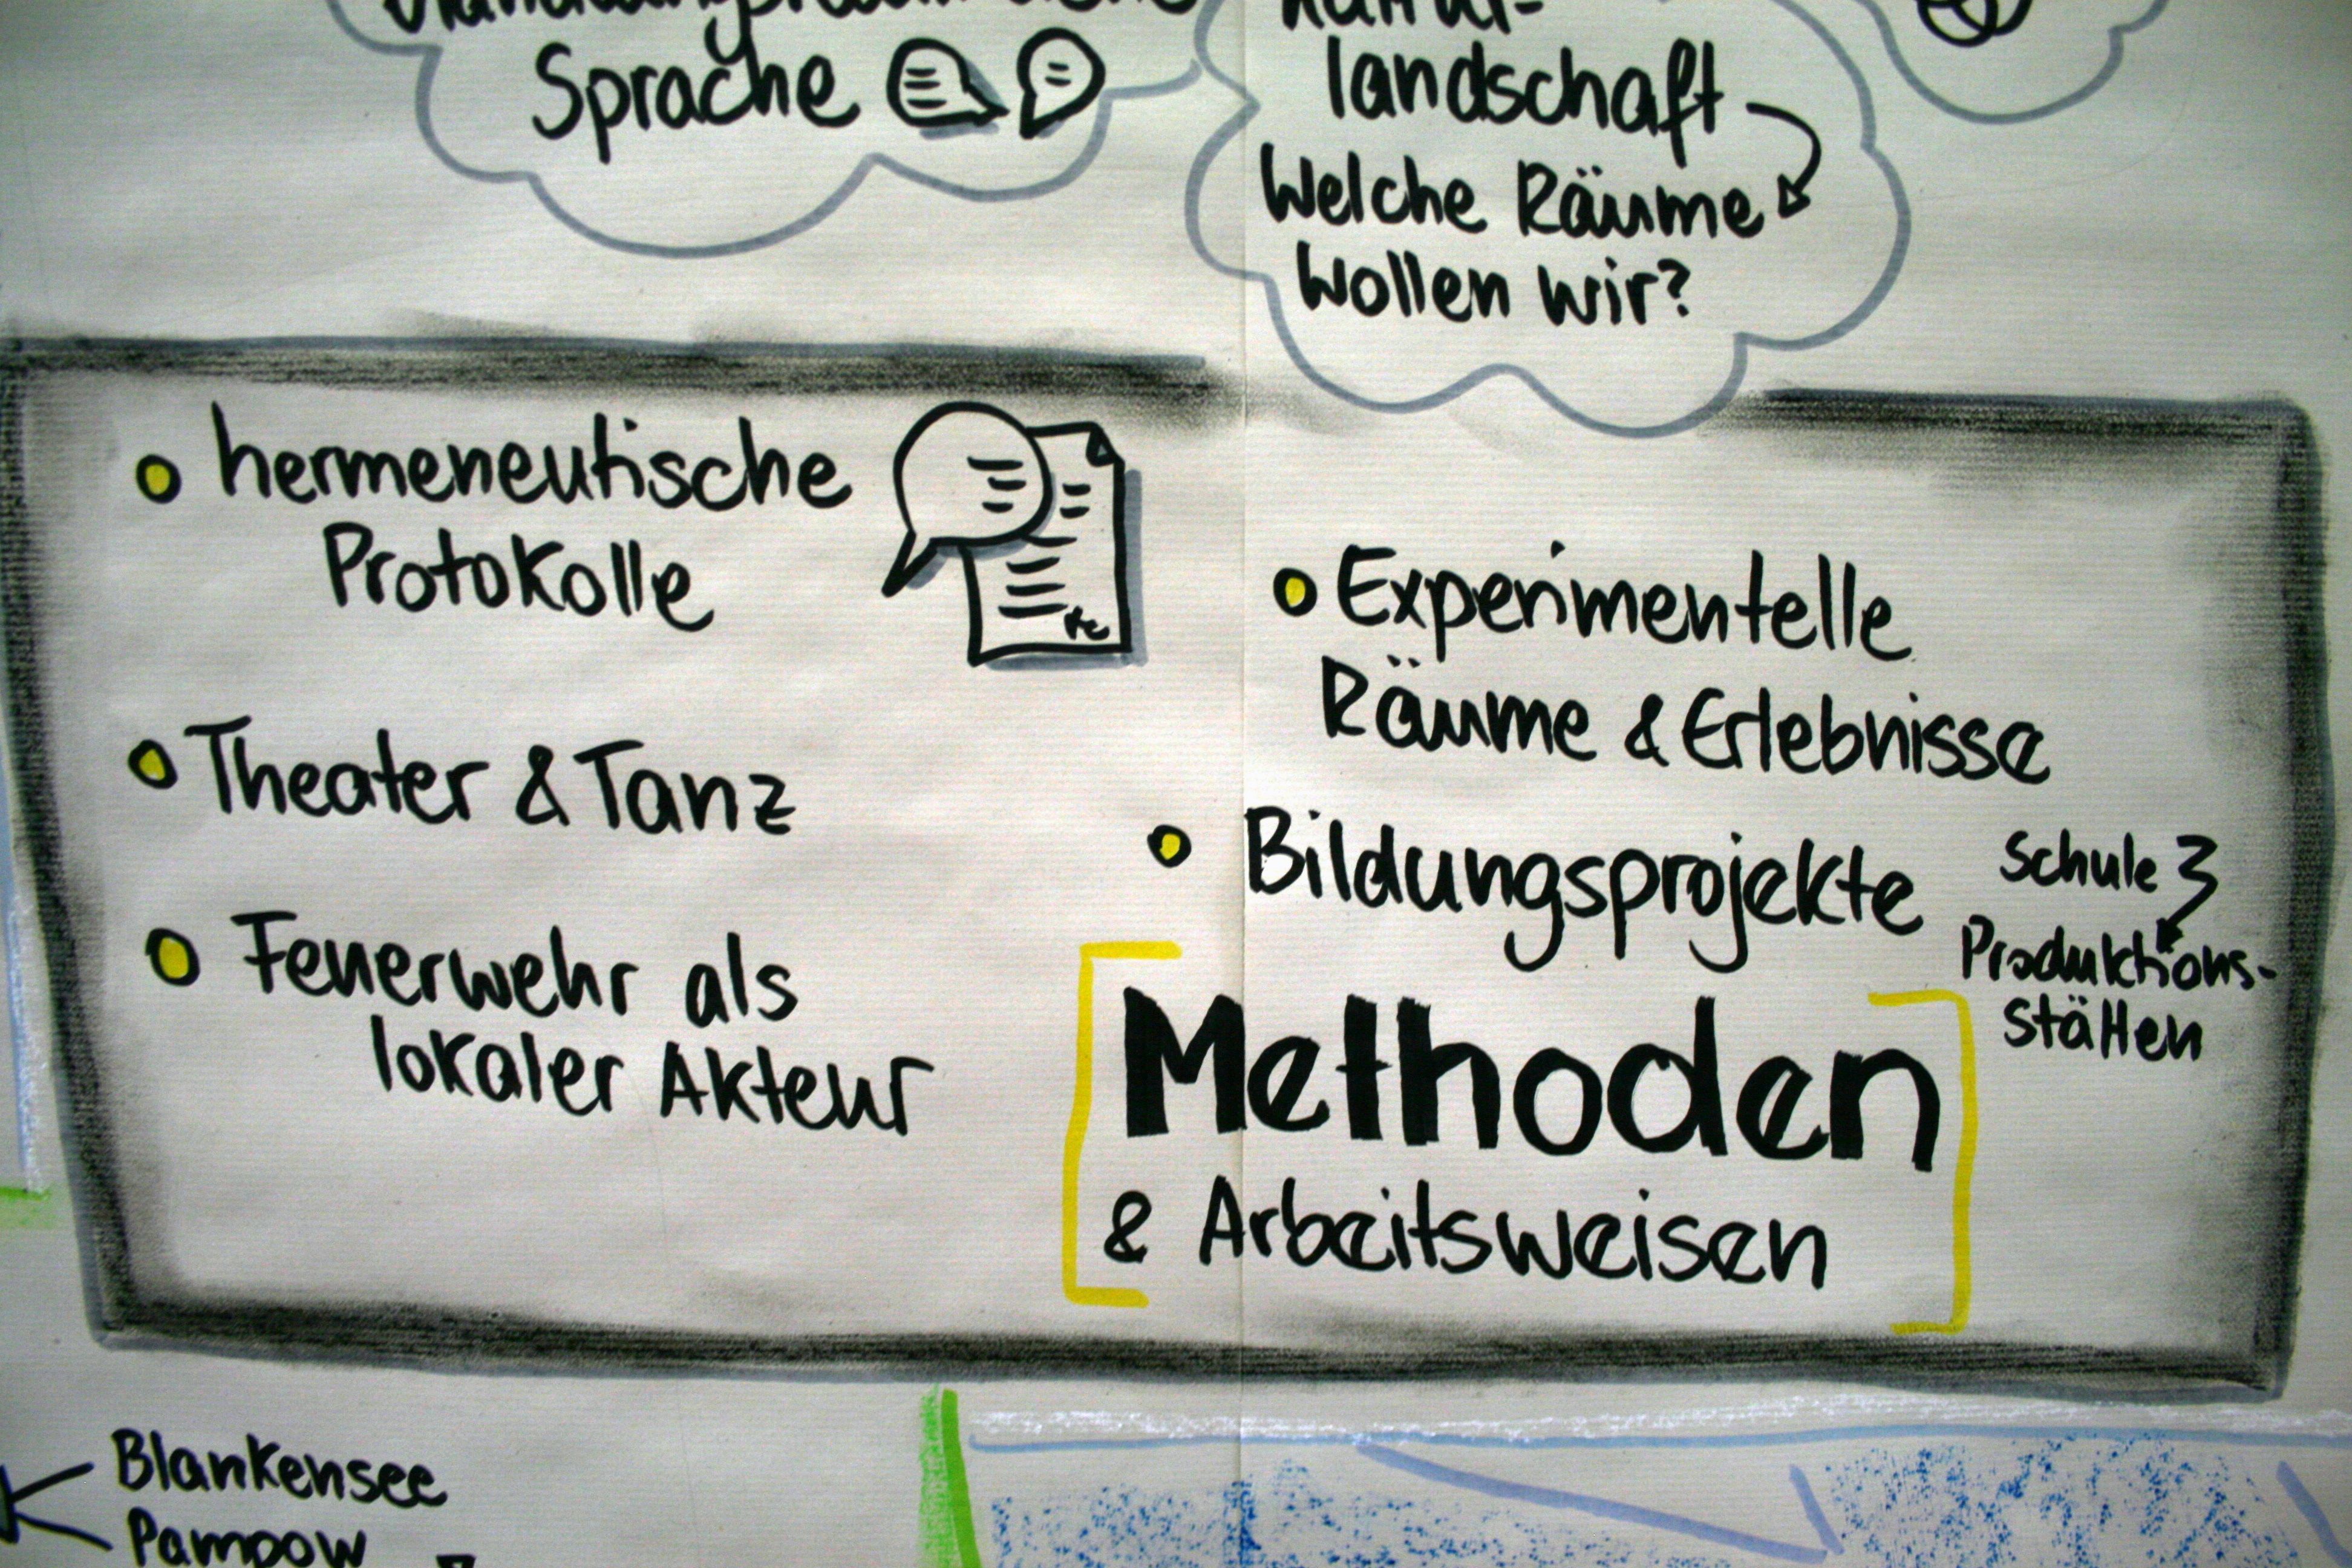 Sprache
landschaft
Welche Räume
wollen wir?
hermeneutische
Protokolle
Theater & Tanz
Feuerwehr als
lokaler Akteur
Experimentelle
Räume & Erlebnisse
Bildungsprojekte
Schule
Produktions-
stätten
Methoden
& Arbeitsweisen
Blankensee
Pampow